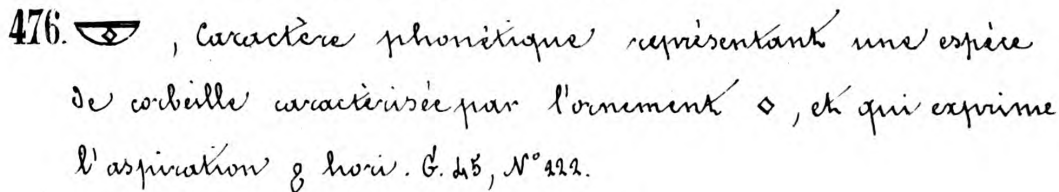 476. 𓎱, Caractère phonétique représentant une espéce
de corbeille caractèrisée par l'ornement ⋄, et qui exprime
l'aspiration ϩ hori. G. 45, N° 222.